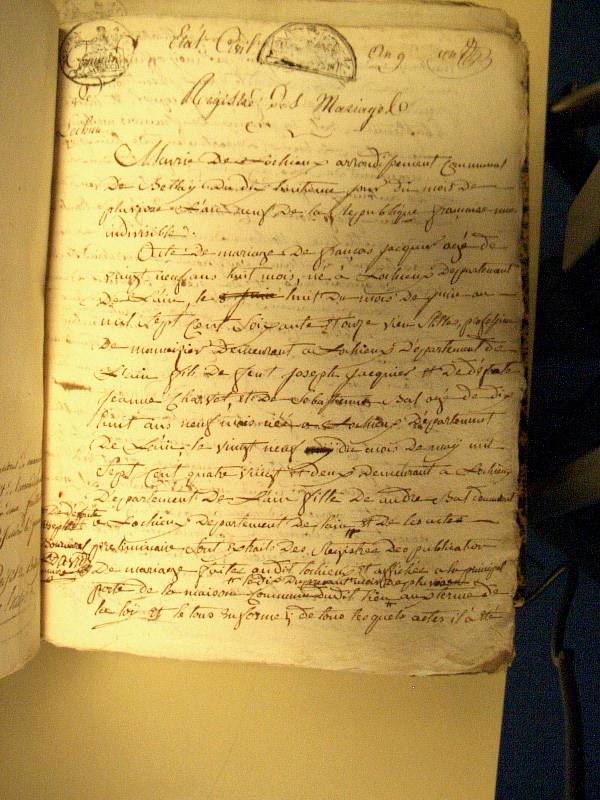 Etat Civil an 9
Registre des Mariages
Mairie de Lochieux arrondissement Communal
de Belley du dix huitieme jour du mois de
pluviose L'an neuf de la Republique française une
indivisible.
Acte de mariage de françois jacquier agé de
vingt neuf ans huit mois, né à Lochieux Departement
De L'ain, le huit du mois de juin an
mil sept Cent Soixante et onze vieu Stile, profession
De monneisier Demeurant a Lochieux Departement de
L'ain fils de feut Joseph Jacquier et De defunte
jeanne Charvet, et De Sebastienne Bal age de dix
huit ans neuf mois née a Lochieux Departement
De L'ain, le vingt neuf du mois de may mil
Sept Cent quatre vingt et deux Demeurant a Lochieux
Departement de L'ain fille de andre Bal
De defunte
a Lochieux Departement de lain et de
preliminaire Sont Extraits des Registres des publication
De mariage faites audit Lochieux et affichés a la principal
porte de la maison Commune dudit lieu aux terme de
la loi et le tous En forme; de tous lesquels actes il a été